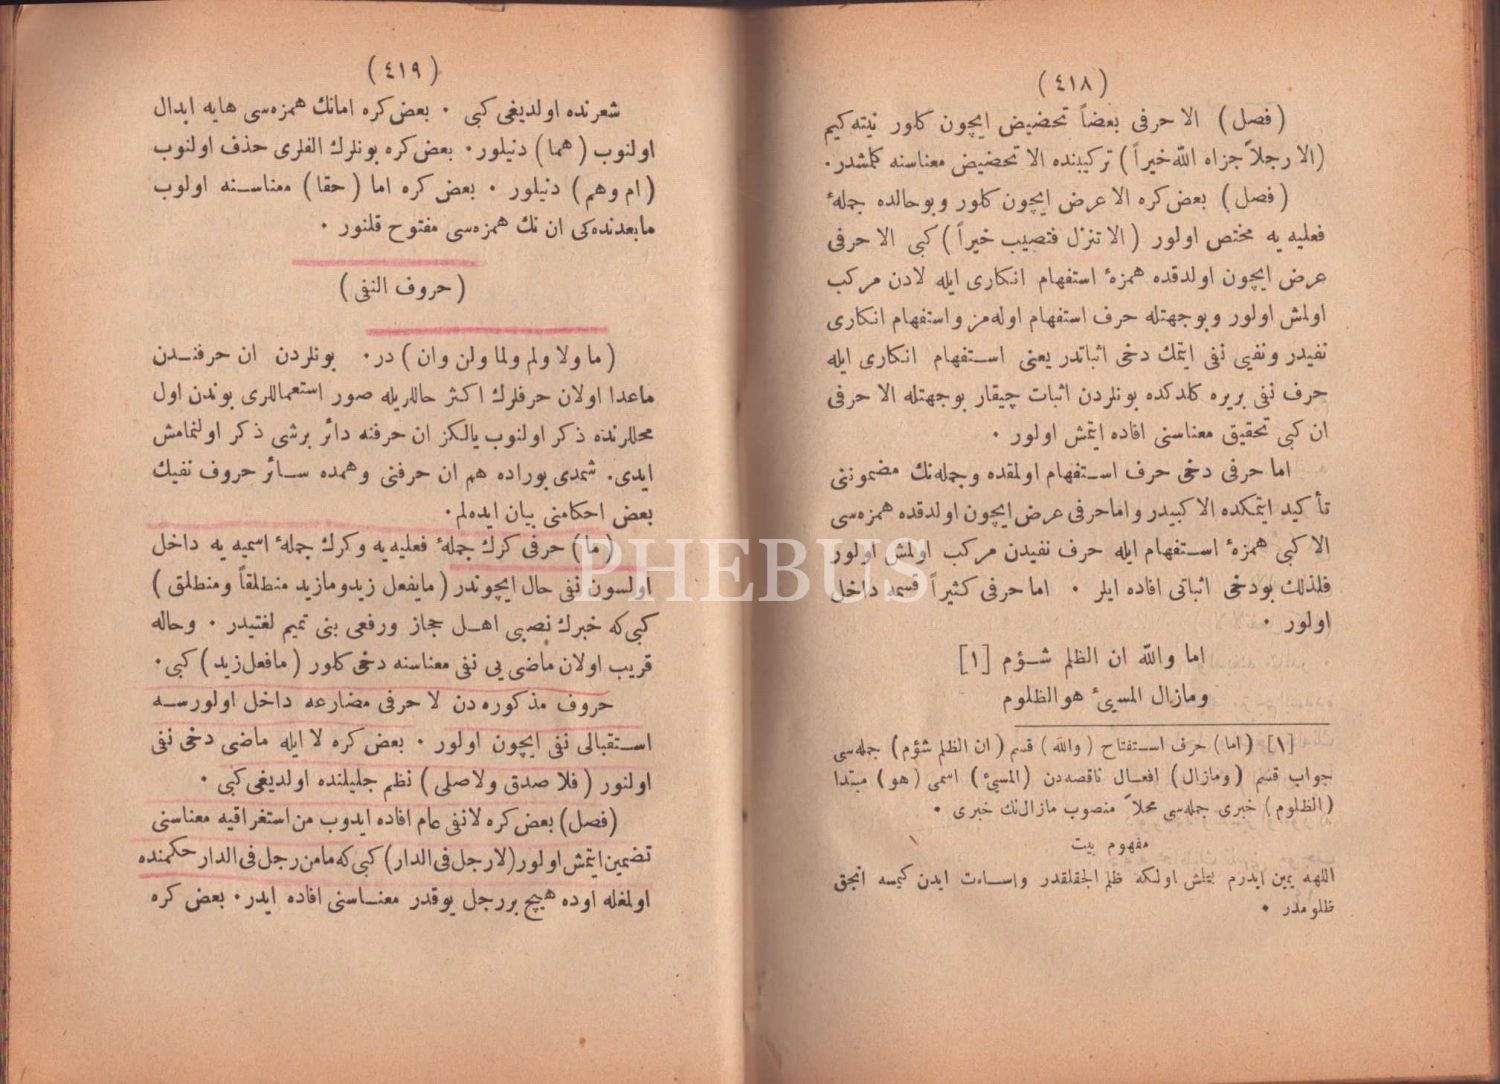 (٤١٨)
(فصل) الا حرفى بعضاً تحضيض ايچون كلور نيته كيم
(الا رجلاً جزاه الله خيراً) تركيبنده الا تحضيض معناسنه كلمشدر.
(فصل) بعض كره الا عرض ايچون كلور وبوحالده جملهٔ
فعليه يه مختص اولور (الا تنزل فتصيب خيراً) كبى الا حرفى
عرض ايچون اولدقده همزهٔ استفهام انكارى ايله لادن مركب
اولمش اولور وبوجهتله حرف استفهام اولهمز واستفهام انكارى
نفيدر ونفيى نفى ايتمك دخى اثباتدر يعنى استفهام انكارى ايله
حرف نفى بريره كلدكده بونلردن اثبات چيقار بوجهتله الا حرفى
ان كبى تحقيق معناسنى افاده ايتمش اولور .
اما حرفى دخى حرف استفهام اولمقده وجملهنك مضموننى
تأكيد ايتمكده الا كبيدر واماحرفى عرض ايچون اولدقده همزهسى
الا كبى همزهٔ استفهام ايله حرف نفيدن مركب اولمش اولور
فلذلك بودخى اثباتى افاده ايلر . اما حرفى كثيراً قسمه داخل
اولور .
اما والله ان الظلم شؤم [١]
ومازال المسيئ هو الظلوم
[١] (اما) حرف استفتاح (والله) قسم (ان الظلم شؤم) جملهسى
جواب قسم (ومازال) افعال ناقصهدن (المسيئ) اسمى (هو) مبتدا
(الظلوم) خبرى جملهسى محلاً منصوب مازالنك خبرى .
مفهوم بيت
اللهه يمين ايدرم بتلش اولكه ظلم الحقلقدر واساءت ايدن كيمسه انجق
ظلومدر .
(٤١٩)
شعرنده اولديغى كبى . بعض كره امانك همزهسى هايه ابدال
اولنوب (هما) دنيلور. بعض كره بونلرك الفلرى حذف اولنوب
(ام وهم) دنيلور . بعض كره اما (حقا) معناسنه اولوب
مابعدندهكى ان نك همزهسى مفتوح قلنور .
(حروف النفى)
(ما ولا ولم ولما ولن وان) در. بونلردن ان حرفندن
ماعدا اولان حرفلرك اكثر حاللريله صور استعماللرى بوندن اول
محللرنده ذكر اولنوب يالكز ان حرفنه دائر برشى ذكر اولنمامش
ايدى. شمدى بوراده هم ان حرفنى وهمده سائر حروف نفيك
بعض احكامنى بيان ايدهلم.
(ما) حرفى كرك جملهٔ فعليه يه وكرك جملهٔ اسميه يه داخل
اولسون نفى حال ايچوندر (مايفعل زيد ومازيد منطلقاً ومنطلق)
كبىكه خبرك نصبى اهل حجاز ورفعى بنى تميم لغتيدر . وحاله
قريب اولان ماضى يى نفى معناسنه دخى كلور (مافعل زيد) كبى.
حروف مذكوره دن لا حرفى مضارعه داخل اولورسه
استقبالى نفى ايچون اولور . بعض كره لا ايله ماضى دخى نفى
اولنور (فلا صدق ولاصلى) نظم جليلنده اولديغى كبى .
(فصل) بعض كره لا نفى عام افاده ايدوب من استغراقيه معناسنى
تضمين ايتمش اولور (لارجل فى الدار) كبىكه مامن رجل فى الدار حكمنده
اولمغله اوده هيچ بررجل يوقدر معناسنى افاده ايدر. بعض كره
PHEBUS